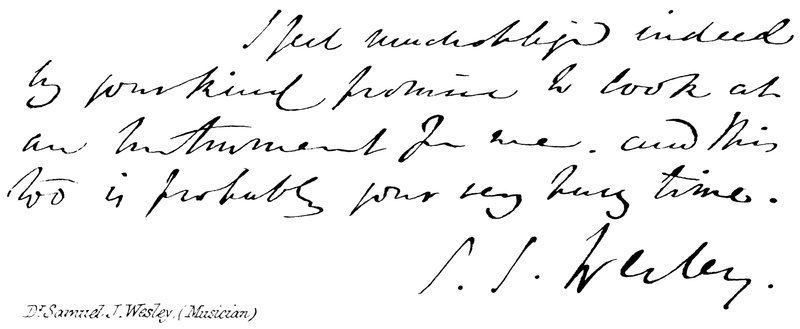 I feel much obliged indeed
by your kind promise to look at
an Instrument for me. and this
too is probably your very busy time.
S. S. Wesley.
Dr. Samuel. J. Wesley. (Musician)